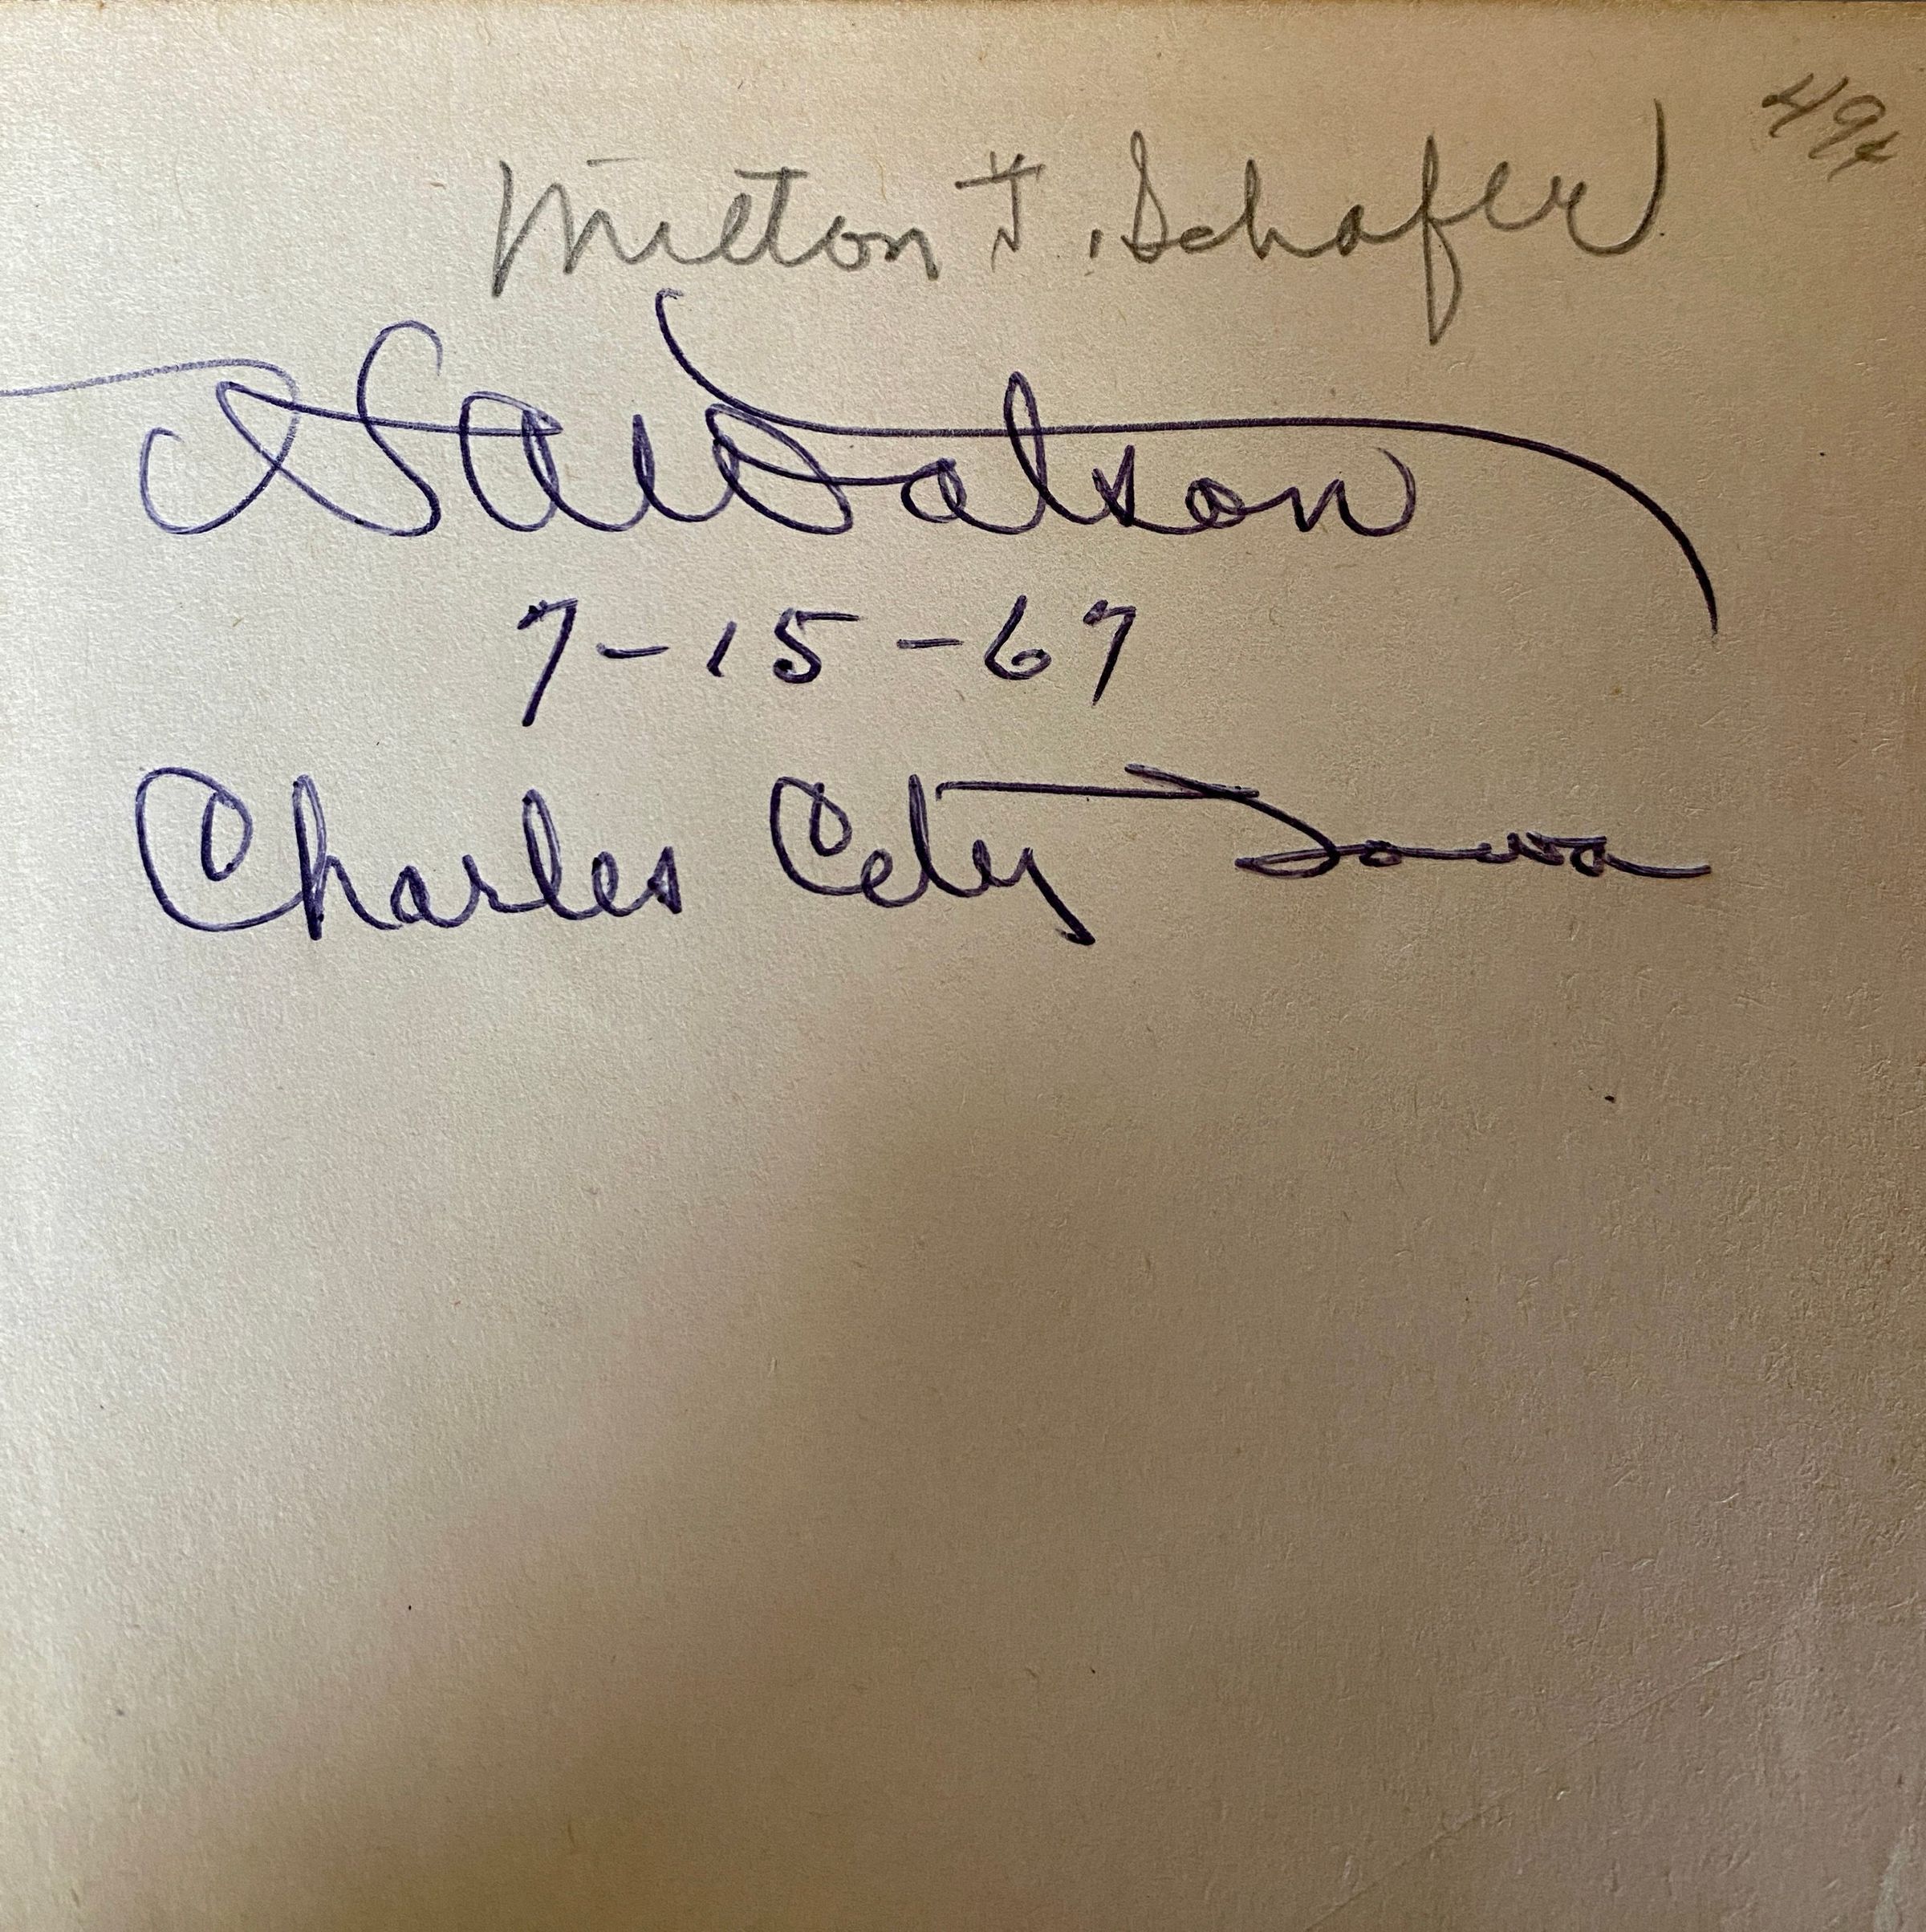 49¢
Milton F. Schafer
Watson
7-15-67
Charles City Iowa